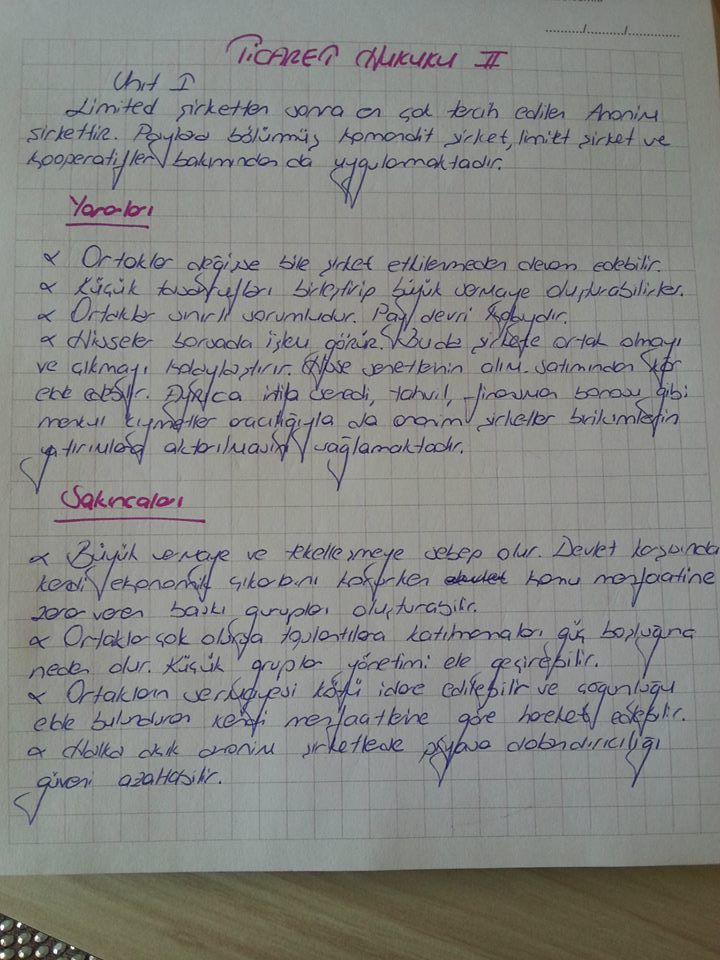 ........../........../..........
TİCARET HUKUKU II
Unit I
Limited şirketten sonra en çok tercih edilen Anonim
şirkettir. Paylara bölünmüş komandit şirket, limitet şirket ve
kooperatifler bakımından da uygulamaktadır.
Yararları
∝ Ortaklar değişse bile şirket etkilenmeden devam edebilir.
∝ Küçük tasarrufları birleştirip büyük sermaye oluşturabilirler.
∝ Ortaklar sınırlı sorumludur. Pay devri kolaydır.
∝ Hisseler borsada işlem görür. Bu da şirkete ortak olmayı
ve çıkmayı kolaylaştırır. Hisse senetlerinin alım-satımından kâr
elde edebilir. Ayrıca intifa senedi, tahvil, finansman bonosu gibi
menkul kıymetler aracılığıyla da anonim şirketler birikimlerin
yatırımlara aktarılmasını sağlamaktadır.
Sakıncaları
∝ Büyük sermaye ve tekelleşmeye sebep olur. Devlet karşısında
kendi ekonomik çıkarlarını korurken kamu menfaatine
zarar veren baskı gurupları oluşturabilir.
∝ Ortaklar çok olursa toplantılara katılmamaları güç boşluğuna
neden olur. Küçük gruplar yönetimi ele geçirebilir.
∝ Ortakların sermayesi kötü idare edilebilir ve çoğunluğu
elde bulunduran kendi menfaatlerine göre hareket edebilir.
∝ Halka açık anonim şirketlerde piyasa dolandırıcılığı
güveni azaltabilir.